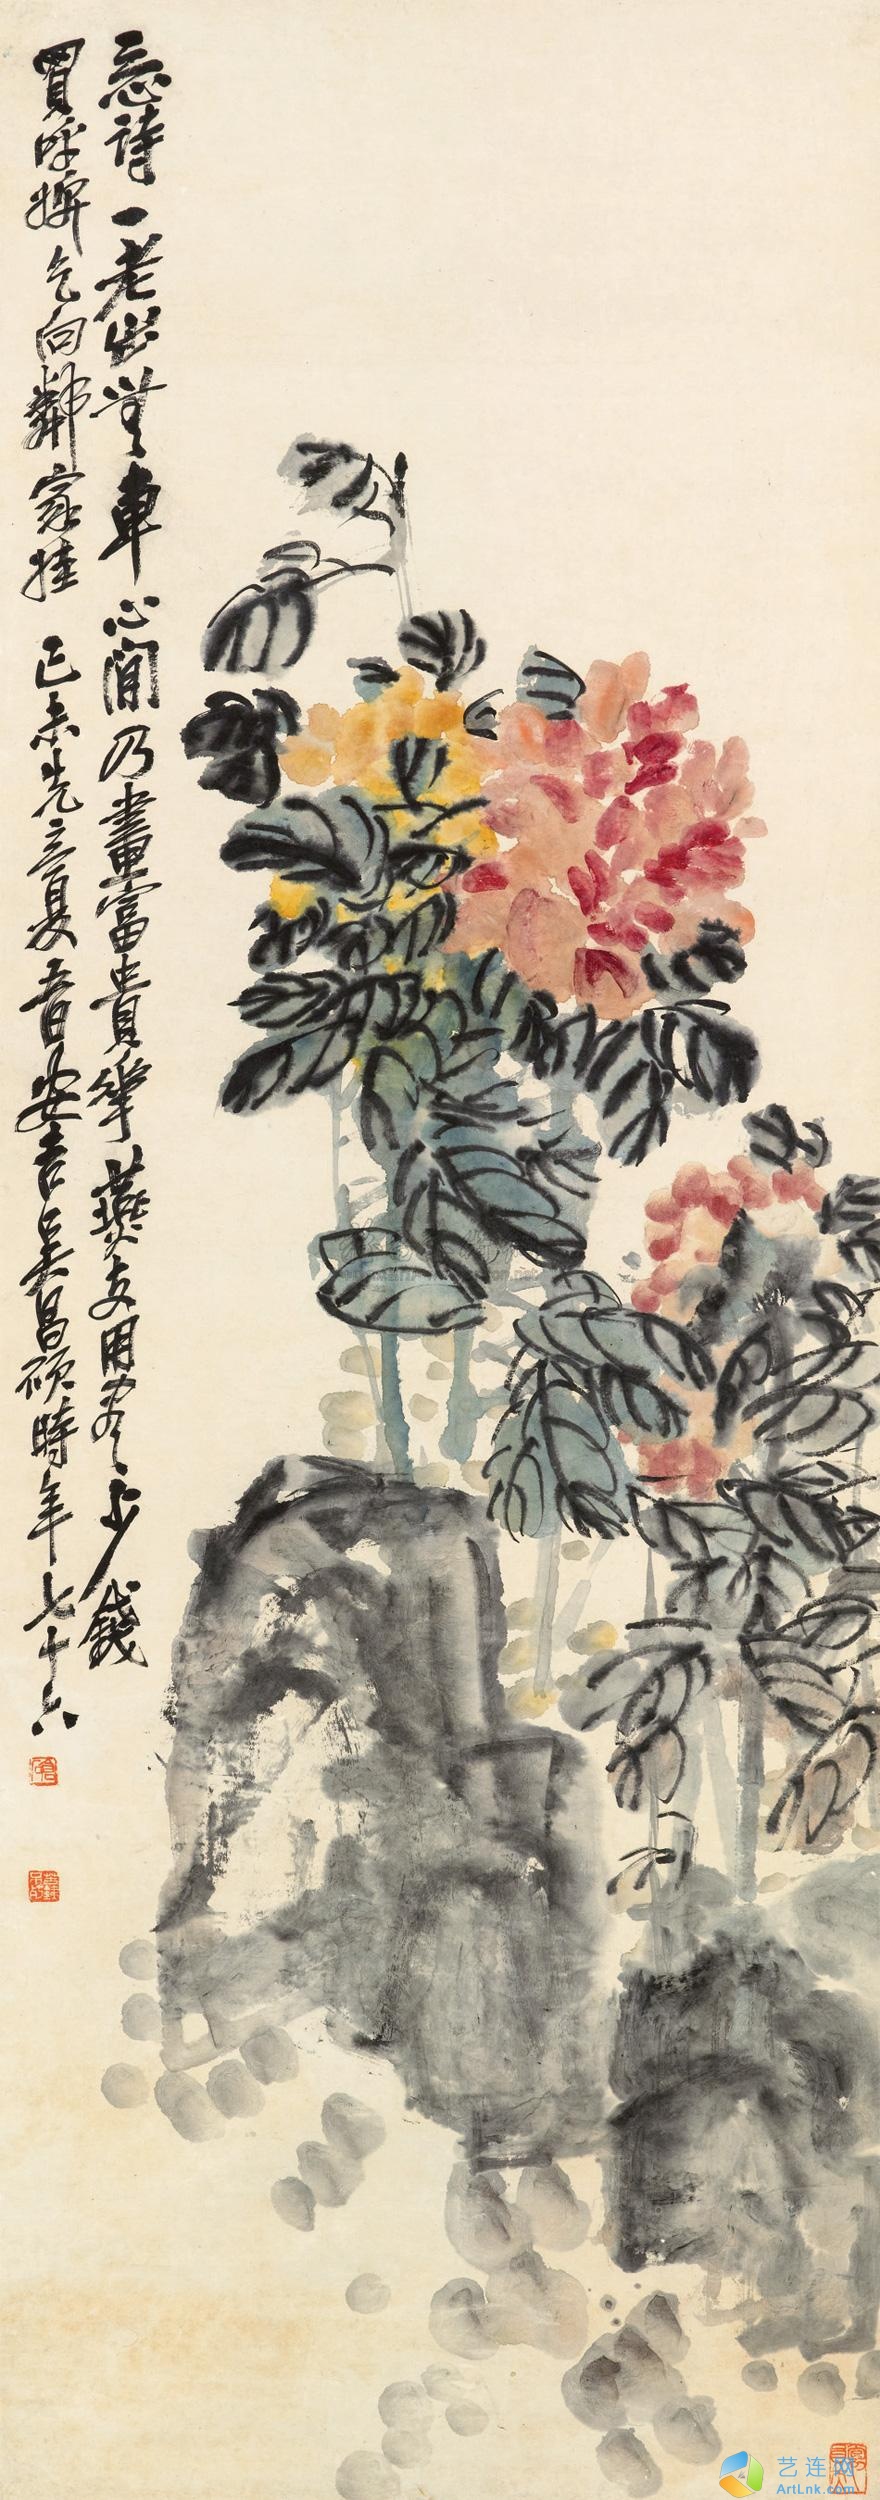 一老出無車心閒乃畫富貴華燕支用盡少錢
買呼婢乞向鄰家娃 己未先立夏 安吉吳昌碩時年七十六
艺连网
ArtLnk.com